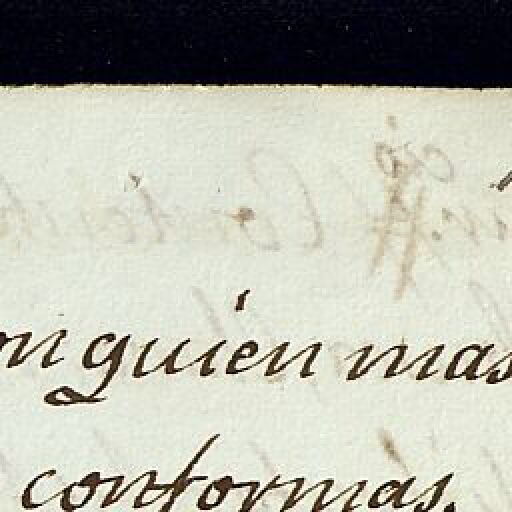 on quien mas
conformas.